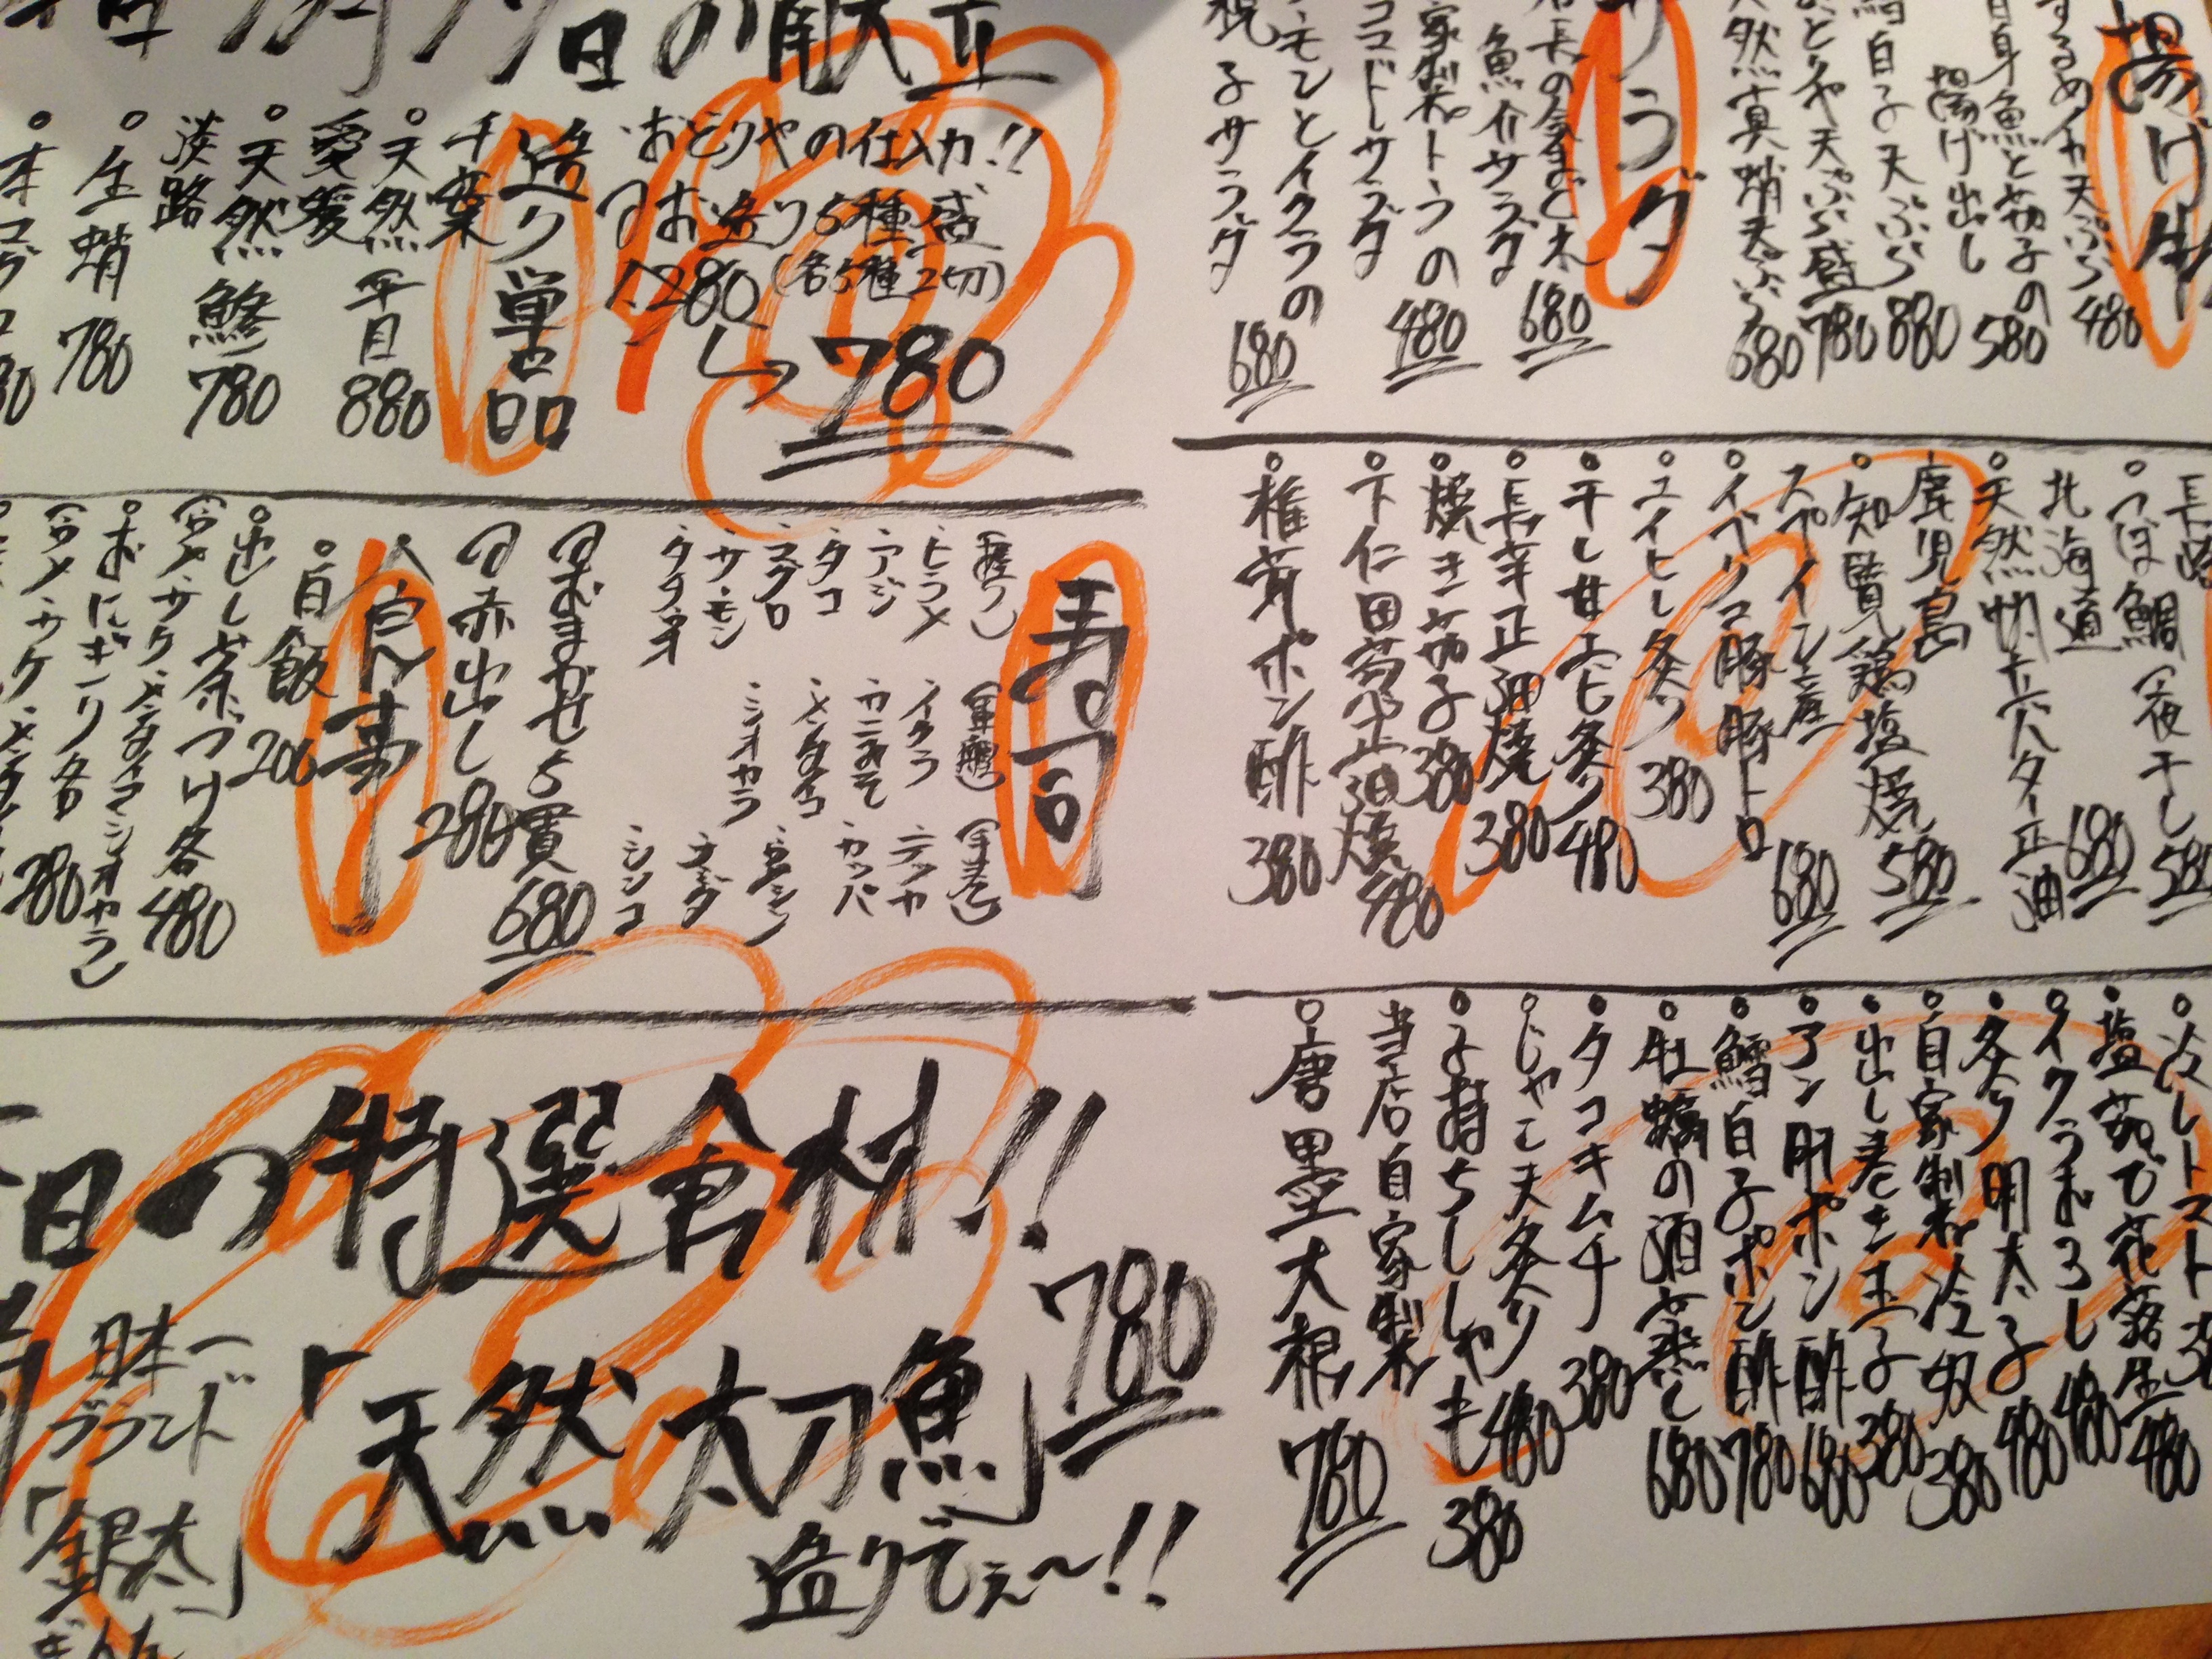 日の献立
おどりやの仕入力!!
おお造り5種盛
(各5種2切)
1,280
→780
造り単品
千葉
天然平目 880
愛媛
天然鯵 780
淡路
生蛸 780
揚げ
するめイカ天ぷら 480
白身魚と茄子の
揚げ出し 580
白子天ぷら 880
おどりや天ぷら盛 780
天然真蛸天ぷら 680
店長の気まぐれ
魚介サラダ 680
家製トウの
サラダ 480
モンとイクラの
親子サラダ 680
寿司
(握り)
・ヒラメ
・アジ
・タコ
・マグロ
・サーモン
(軍艦)
・イクラ
・カニみそ
・メンタイコ
・シオカラ
(手巻)
・テッカ
・カッパ
・シンコ
おまかせ5貫 680
赤出し 280
食事
白飯 200
出し茶づけ各 480
おにぎり各 280
つぼ鯛一夜干し 580
北海道
天然帆立バター正油 680
鹿児島
知覧鶏塩焼 580
スペイン産
イベリコ豚豚トロ 680
エイヒレ炙り 380
干し甘エビ炙り 480
長芋正油焼 380
焼き茄子 380
下仁田葱正油焼 480
椎茸ポン酢 380
冷しトマト
塩茹で花落生 480
イクラおろし 480
炙り明太子 480
自家製冷奴 380
出し巻き玉子 380
アン肝ポン酢 680
鱈白子ポン酢 780
牡蠣の酒蒸し 680
タコキムチ 380
じゃこ天炙り 480
子持ちししゃも 380
当店自家製
唐墨大根 780
日の特選食材!!
「天然太刀魚」 780
造りでぇ〜!!
日本一
ブランド
「銀太」